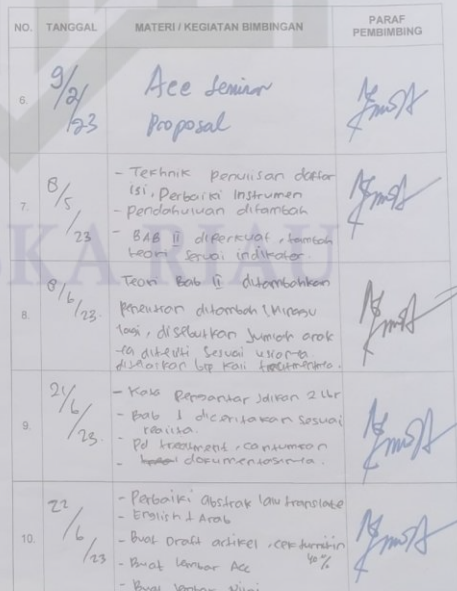 NO. TANGGAL MATERI / KEGIATAN BIMBINGAN PARAF PEMBIMBING
6. 9/2/23 Acc Seminar
Proposal
7. 8/5/23 - Tekhnik penulisan daftar
isi, Perbaiki Instrumen
- Pendahuluan ditambah
- BAB II diperkuat, tambah
teori sesuai indikator.
SKA RIAU
8. 8/6/23. Teori Bab II ditambahkan
Penelitian ditambah 1 Minggu
lagi, disebutkan Jumlah anak
yg diteliti sesuai
dijelaskan brp kali treatmentnya.
9. 21/6/23. - Kata Pengantar Jdikan 2 lbr
- Bab 1 diceritakan sesuai
realita.
- Pd treatment, cantumkan
- dokumentasinya.
10. 22/6/23 - Perbaiki abstrak lalu translate
- English & Arab
- Buat Draft artikel, cek turnitin
40%
- Buat lembar Acc
- Buat lembar